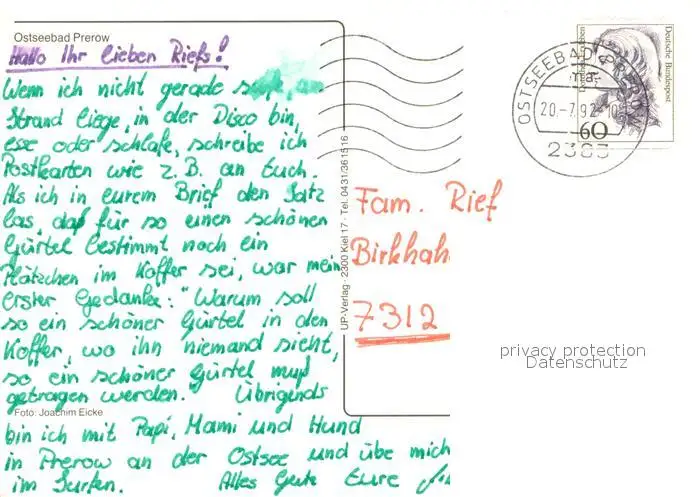 Ostseebad Prerow
Hallo Ihr lieben Riefs!
Wenn ich nicht gerade am
Strand liege, in der Disco bin,
esse oder schlafe, schreibe ich
Postkarten wie z.B. an Euch.
Als ich in eurem Brief den Satz
las, daß für so einen schönen
Gürtel bestimmt noch ein
Plätzchen im Koffer sei, war mein
erster Gedanke: "Warum soll
so ein schöner Gürtel in den
Koffer, wo ihn niemand sieht,
so ein schöner Gürtel muß
getragen werden." Übriginds
Foto: Joachim Eicke
bin ich mit Papi, Mami und Hund
in Prerow an der Ostsee und übe mich
im Surfen. Alles Gute Eure
UP-Verlag · 2300 Kiel 17 · Tel. 0431/361516
Deutsche Bundespost
OSTSEEBAD PREROW
20.-7.92-10
60
2383
Fam. Rief
Birkhah
7312
privacy protection
Datenschutz